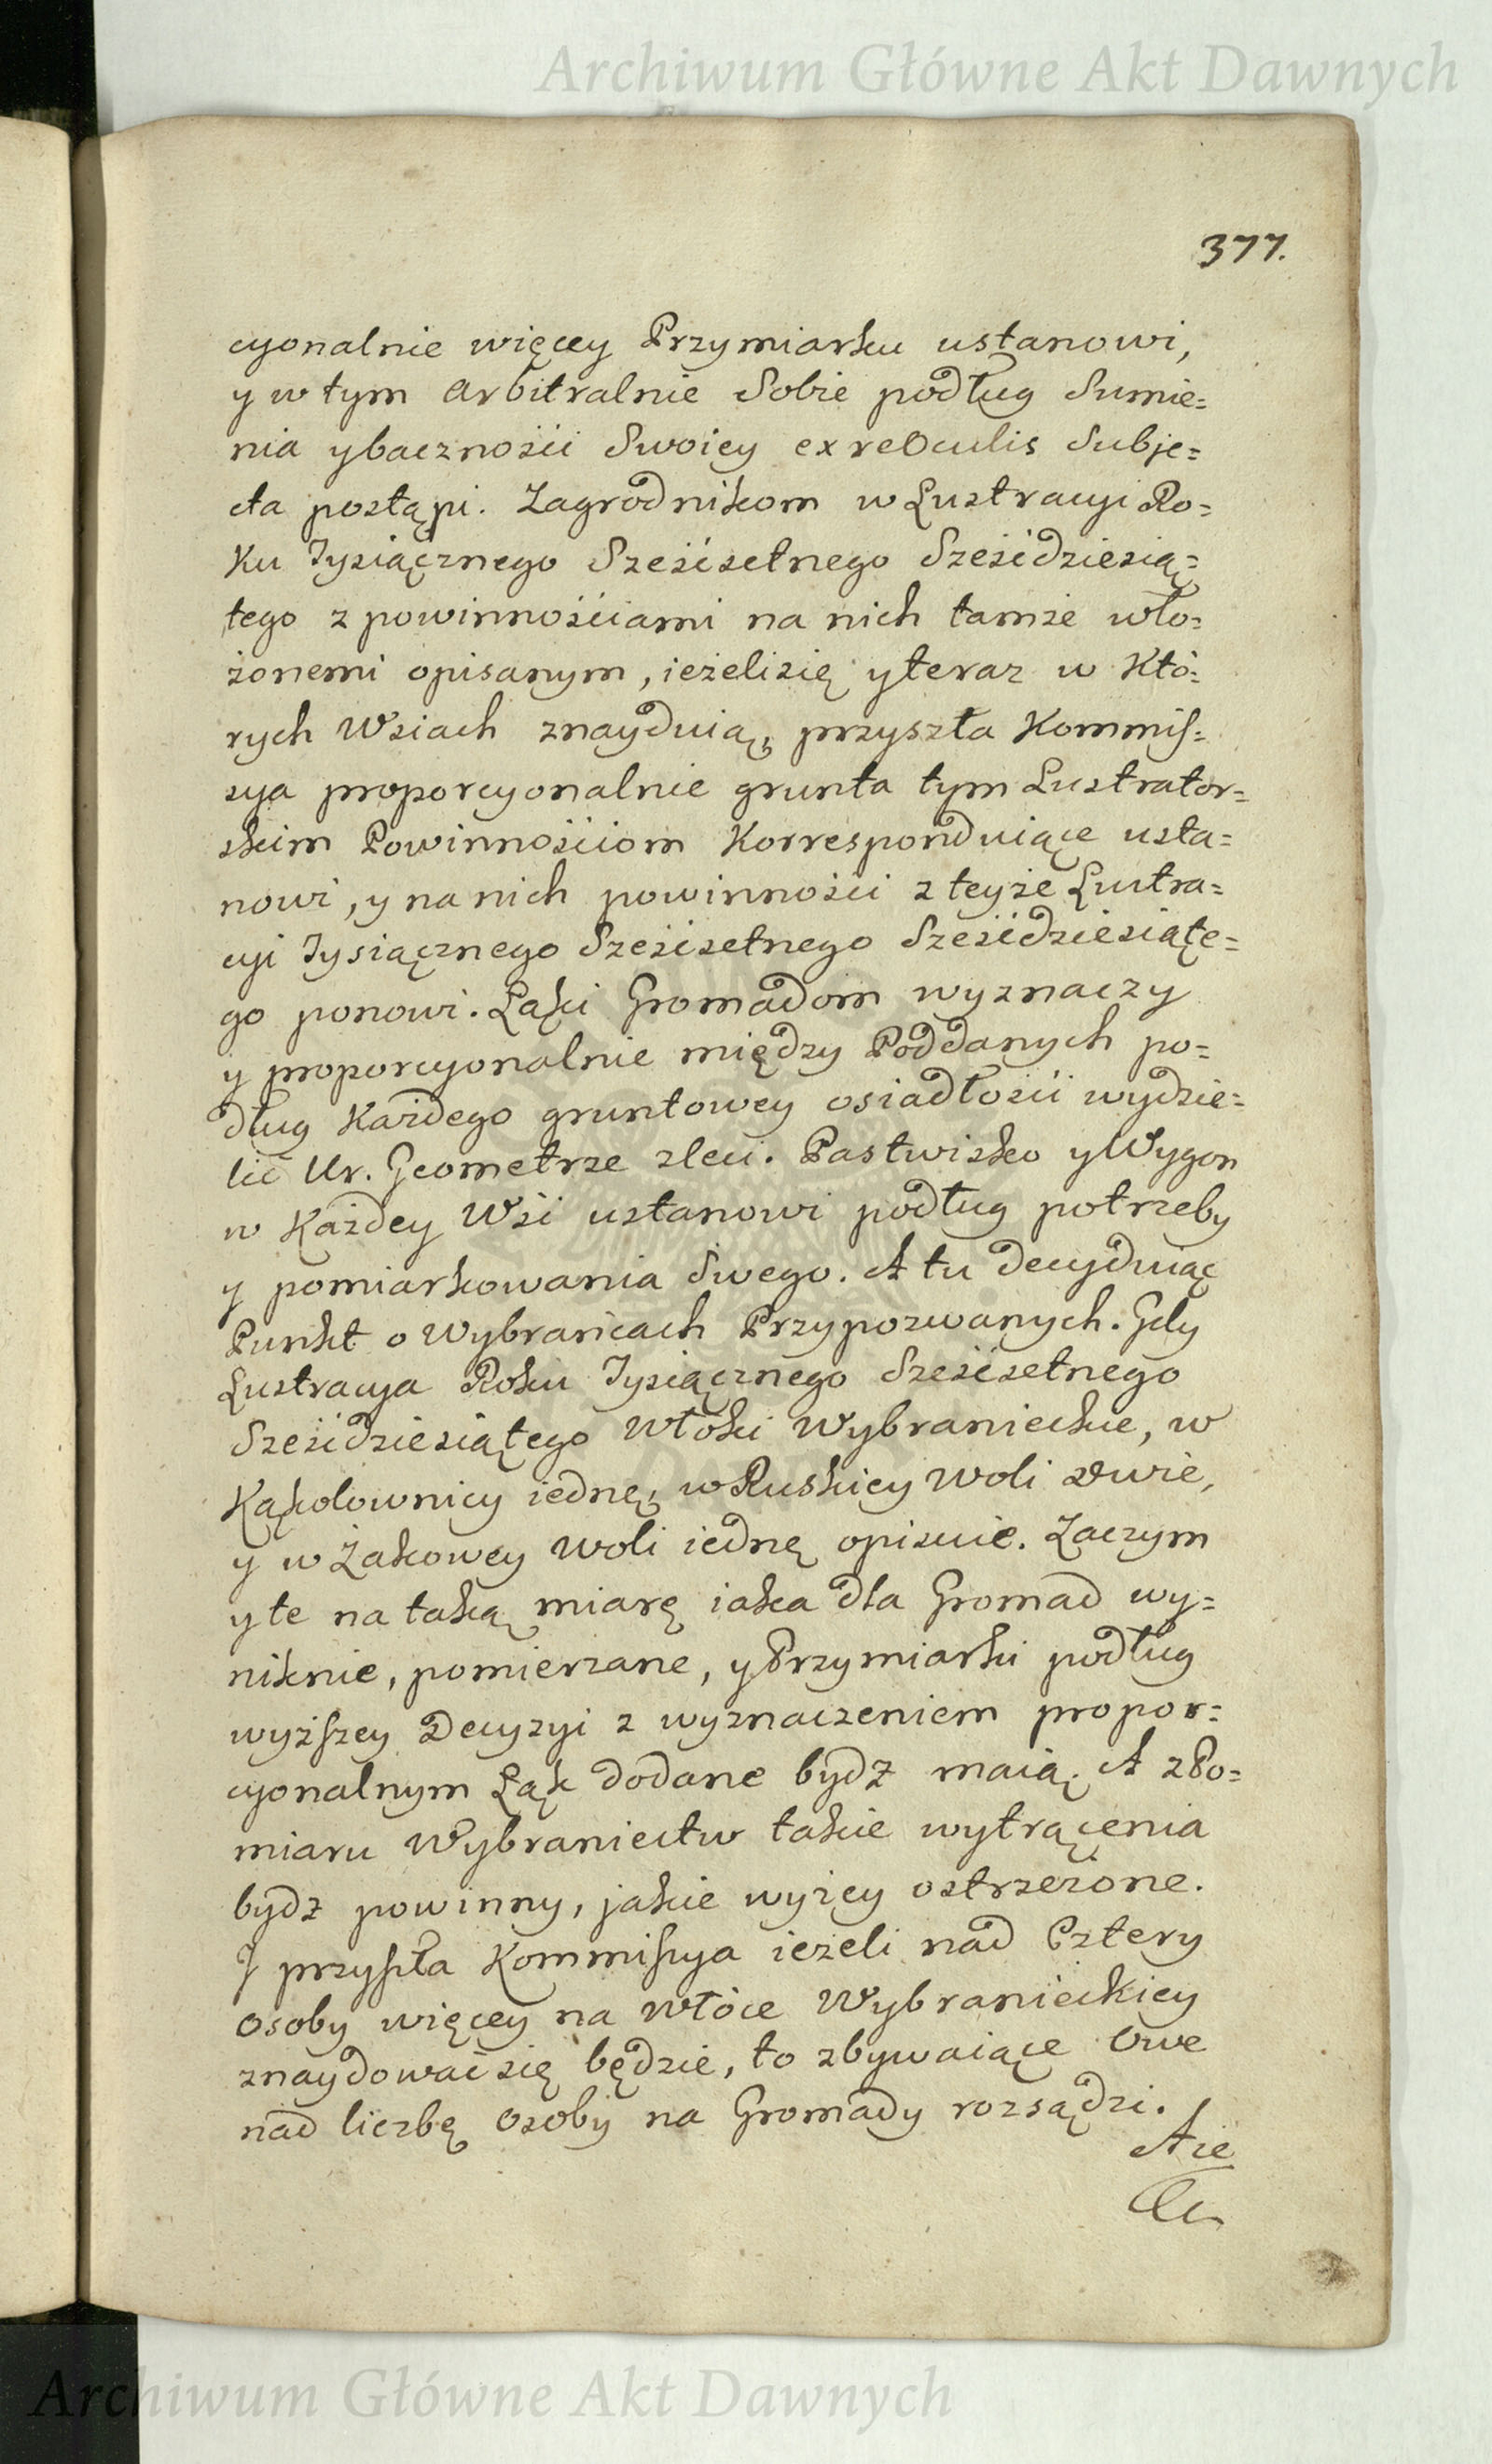 Archiwum Główne Akt Dawnych
377.
cyonalnie więcey Przymiarku ustanowi,
y w tym arbitralnie Sobie podług Sumie=
nia y baczności Swoiey ex re Oculis Subje=
cta postąpi. Zagrodnikom w Lustracyi Ro=
ku Tysiącznego Sześćsetnego Sześćdziesią=
tego z powinnościami na nich tamże wło=
żonemi opisanym, ieżeli się y teraz w Któ=
rych Wsiach znayduią, przyszła Kommis=
sya proporcyonalnie grunta tym Lustrator=
skim Powinnościom Korresponduiące usta=
nowi, y na nich powinności z teyże Lustra=
cyi Tysiącznego Sześćsetnego Sześćdziesiąte=
go ponowi. Łąki Gromadom wyznaczy
y proporcyonalnie między Poddanych po=
dług Każdego gruntowey osiadłości wydzie=
lić Ur. Geometrze zleci. Pastwisko y Wygon
w Każdey Wsi ustanowi podług potrzeby
y pomiarkowania Swego. A tu decyduiąc
Punkt o Wybrańcach Przypozwanych. Gdy
Lustracya Roku Tysiącznego Sześćsetnego
Sześćdziesiątego Włoki Wybranieckie, w
Kąkolownicy iednę, w Ruskiey Woli dwie,
y w Żakowey Woli iednę opisuie. Zaczym
y te na taką miarę iaka dla Gromad wy=
niknie, pomierzane, y Przymiarki podług
wyższey Decyzyi z wyznaczeniem propor=
cyonalnym Łąk dodane bydź maią. A z Po=
miaru Wybraniectw takie wytrącenia
bydz powinny, jakie wyżey ostrzeżone.
I przyszła Kommissya ieżeli nad Cztery
Osoby więcey na Włóce Wybranieckiey
znaydować się będzie, to zbywaiące Owe
nad liczbę Osoby na Gromady rozsądzi.
A że
Archiwum Główne Akt Dawnych